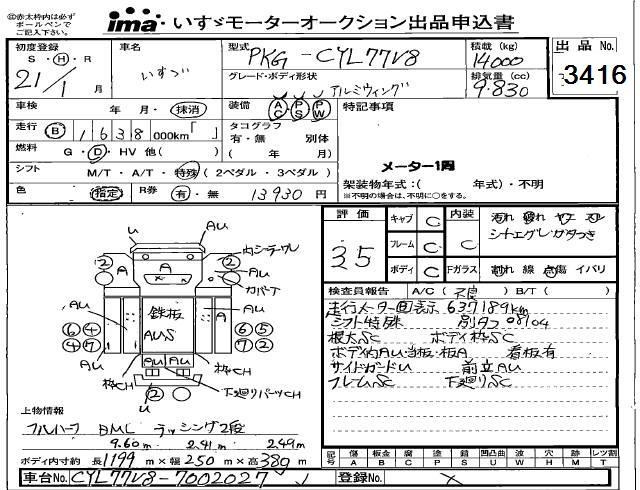 ◎赤太枠内は必ず
ボールペンで
ご記入下さい。
ima いすゞモーターオークション出品申込書
初度登録 S・H・R
21/1月
車名
いすゞ
型式 PKG-CYL77V8
グレード・ボディ形状
アルミウィング
積載 (kg)
14000
排気量 (cc)
9.830
出品 No.
3416
車検 年・月・抹消
装備 AC PS PW
特記事項
走行 B 1638000km「 」
タコグラフ
有・無 別体
( 年 月)
燃料 G・D・HV 他( )
メーター1周
シフト M/T・A/T・特殊 (2ペダル・3ペダル)
架装物年式:( 年式)・不明
※不明の場合は、不明に○をする。
色 指定 R券 有・無 13930 円
評価
3.5
キャブ C
フレーム C
ボディ C
内装
C
汚れ 破れ ヤエ スレ
シートエグレ ガタつき
Fガラス 割れ 線 点傷 イバリ
検査員報告 A/C( 不良 ) B/T( )
走行メーター回表示 637189km
シフト特殊 別タコ 08104
根太SC ボディ枠SC
ボディ内AU 当板・板A 看板有
サイドガードU 前立AU
フレームSC 下廻りSC
U
AU
内シラーウレ
② A ②
A A
カバーア
AU AU
鉄板
AUS
⑥ ④ ⑥ ⑤
④ ⑦ ⑦ ②
AU AU
枠CH
枠CH
下廻りパーツCH
U
上物情報
フルハーフ BML ラッシング2段
9.60m 2.41m 2.49m
ボディ内寸約 長1199m×幅250m×高389m
記号 傷 A 板金 B 腐 C 塗 P 錆 S 凹凸曲 U 要 W 曇 H 穴 M 痕 X レツ割 T
車台No. CYL77V8-7002027
登録No.